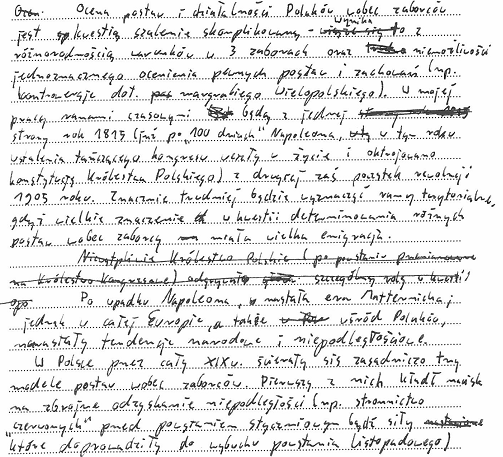 Ocen. Ocena postaw i działalności Polaków wobec zaborców
jest sp. kwestią szalenie skomplikowaną - wiąże się to z
wynika
różnorodnością warunków w 3 zaborach oraz niemożliwości
jednoznacznego ocenienia pewnych postaw i zachowań (np.
kontrowersje dot. margrabiego Wielopolskiego). W mojej
pracy ramami czasowymi będą z jednej
strony rok 1815 (już po "100 dniach" Napoleona, w tym roku
ustalenia tańczącego kongresu weszły w życie i oktrojowano
konstytucję Królestwa Polskiego) z drugiej zaś początek rewolucji
1905 roku. Znacznie trudniej będzie wyznaczyć ramy terytorialne,
gdyż wielkie znaczenie w kwestii determinowania różnych
postaw wobec zaborcy miała wielka emigracja.
Niewątpliwie Królestwo Polskie (po powstaniu przemianowane
na Królestwo Kongresowe) odgrywało szczególną rolę w kwestii
ogo. Po upadku Napoleona, nastała era Metternicha,
jednak w całej Europie, a także wśród Polaków,
narastały tendencje narodowe i niepodległościowe.
W Polsce przez cały XIX w. ścierały się zasadniczo trzy
modele postaw wobec zaborców. Pierwszy z nich kładł nacisk
na zbrojne odzyskanie niepodległości (np. stronnictwo
"czerwonych" przed powstaniem styczniowym bądź siły
które doprowadziły do wybuchu powstania listopadowego)